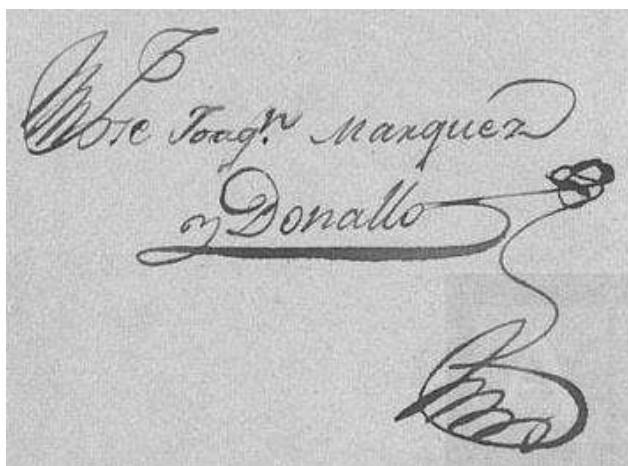 Jose Joaq.n Marquez
y Donallo